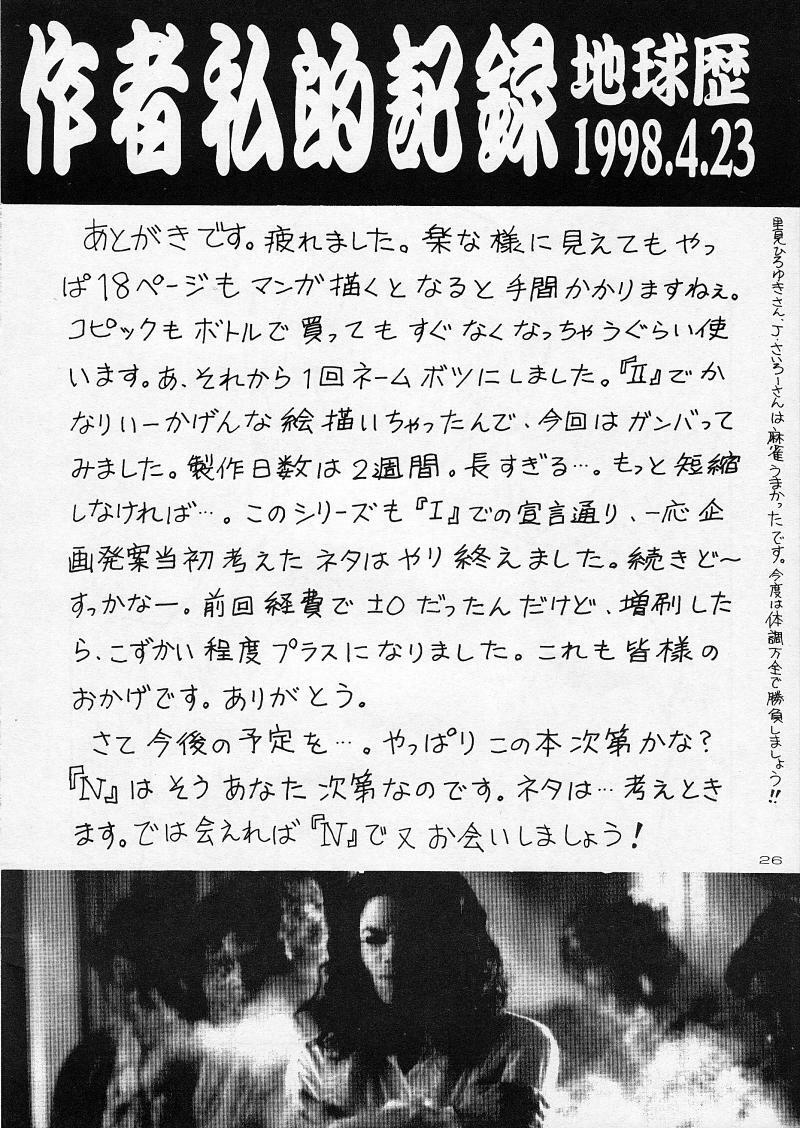 作者私的記録 地球歴
1998.4.23
あとがきです。疲れました。楽な様に見えてもやっ
ぱ18ページもマンガ描くとなると手間かかりますねぇ。
コピックもボトルで買ってもすぐなくなっちゃうぐらい使
います。あ、それから1回ネームボツにしました。『II』でか
なりいーかげんな絵描いちゃったんで、今回はガンバって
みました。製作日数は2週間。長すぎる…。もっと短縮
しなければ…。このシリーズも『I』での宣言通り、一応企
画発案当初考えたネタはやり終えました。続きど〜
すっかなー。前回経費で±0だったんだけど、増刷した
ら、こずかい程度プラスになりました。これも皆様の
おかげです。ありがとう。
さて今後の予定を…。やっぱりこの本次第かな?
『IV』はそうあなた次第なのです。ネタは…考えとき
ます。では会えれば『IV』で又お会いしましょう!
里見ひろゆきさん、J・さいろーさんは麻雀うまかったです。今度は体調万全で勝負しましょう!!
26